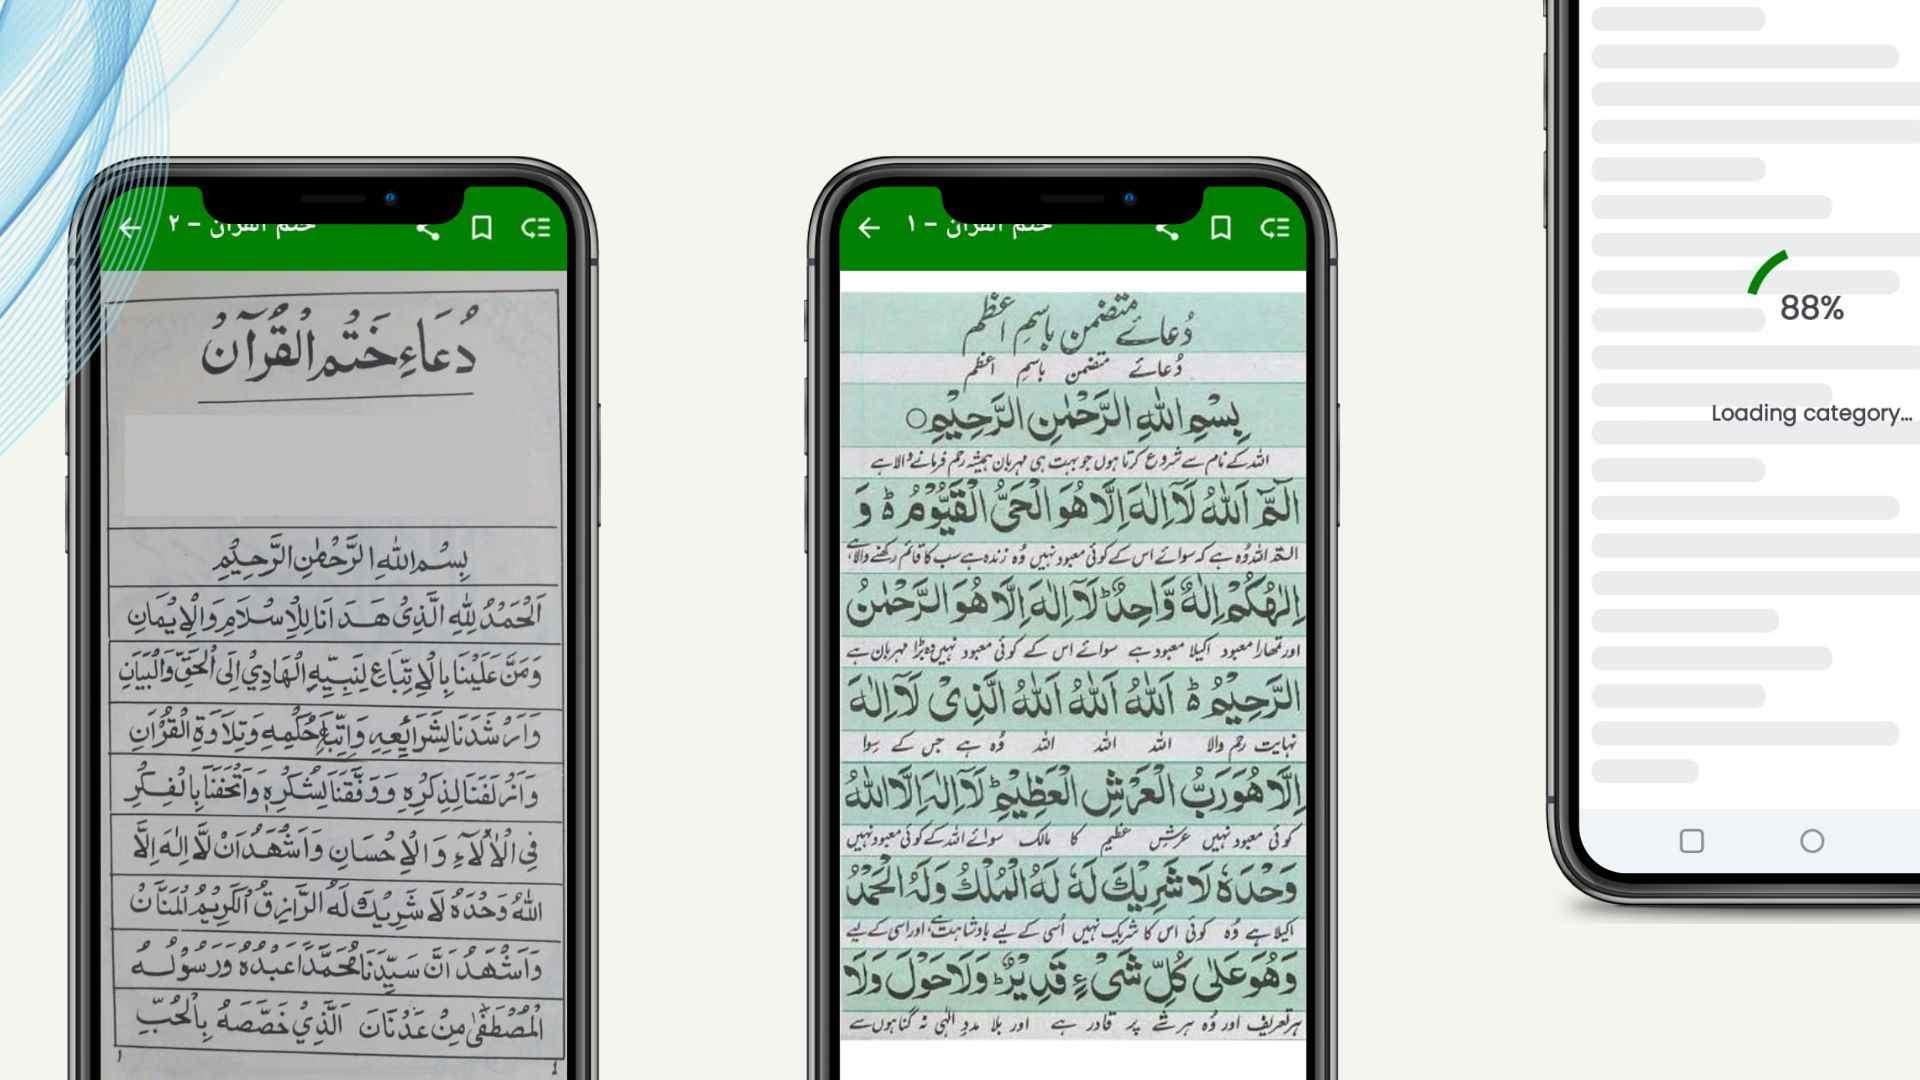 ختم القرآن – ٢
دُعَاءِ خَتْمِ الْقُرْآنُ
بِسْمِ اللهِ الرَّحْمٰنِ الرَّحِيْمِ
اَلْحَمْدُ لِلّٰهِ الَّذِىْ هَدَانَا لِلْاِسْلَامِ وَالْاِيْمَانِ
وَمَنَّ عَلَيْنَا بِالْاِتِّبَاعِ لِنَبِيِّهِ الْهَادِيْ اِلَى الْحَقِّ وَالْبَيَانِ
وَاَرْشَدَنَا لِشَرَائِعِهٖ وَاتِّبَاعِ حُكْمِهٖ وَتِلَاوَةِ الْقُرْاٰنِ
وَاَزْلَفَنَا لِذِكْرِهٖ وَوَفَّقَنَا لِشُكْرِهٖ وَاَتْحَفَنَا بِالْفِكْرِ
فِى الْاٰلَاءِ وَالْاِحْسَانِ وَاَشْهَدُ اَنْ لَّا اِلٰهَ اِلَّا
اللهُ وَحْدَهٗ لَا شَرِيْكَ لَهُ الرَّازِقُ الْكَرِيْمُ الْمَنَّانُ
وَاَشْهَدُ اَنَّ سَيِّدَنَا مُحَمَّدًا عَبْدُهٗ وَرَسُوْلُهُ
الْمُصْطَفٰى مِنْ عَدْنَانَ الَّذِيْ خَصَّصَهٗ بِالْحُبِّ
١
ختم القرآن – ١
دُعائے متضمن باسمِ اعظم
دُعائے متضمن باسمِ اعظم
بِسْمِ اللهِ الرَّحْمٰنِ الرَّحِيْمِ○
اللہ کے نام سے شروع کرتا ہوں جو بہت ہی مہربان ہمیشہ رحم فرمانے والا ہے
الٓمّٓ اَللهُ لَآ اِلٰهَ اِلَّا هُوَ الْحَىُّ الْقَيُّوْمُ ؕ وَ
الٓمّٓ اللہ وُہ ہے کہ سوائے اس کے کوئی معبود نہیں وُہ زندہ ہے سب کا قائم رکھنے والا ہے
اِلٰهُكُمْ اِلٰهٌ وَّاحِدٌ ؕ لَآ اِلٰهَ اِلَّا هُوَ الرَّحْمٰنُ
اور تمھارا معبود اکیلا معبود ہے سوائے اس کے کوئی معبود نہیں وہ بڑا مہربان ہے
الرَّحِيْمُ ؕ اَللهُ اَللهُ اَللهُ الَّذِىْ لَآ اِلٰهَ
نہایت رحم والا اللہ اللہ اللہ وُہ ہے جس کے سوا
اِلَّا هُوَ رَبُّ الْعَرْشِ الْعَظِيْمِ ؕ لَآ اِلٰهَ اِلَّا اللهُ
کوئی معبود نہیں عرشِ عظیم کا مالک سوائے اللہ کے کوئی معبود نہیں
وَحْدَهٗ لَا شَرِيْكَ لَهٗ لَهُ الْمُلْكُ وَلَهُ الْحَمْدُ
اکیلا ہے وُہ کوئی اس کا شریک نہیں اُسی کے لیے بادشاہت ہے اور اسی کے لیے
وَهُوَ عَلٰى كُلِّ شَىْءٍ قَدِيْرٌ ؕ وَلَا حَوْلَ وَلَا
ہر تعریف اور وُہ ہر شے پر قادر ہے اور بلا مددِ الٰہی نہ گناہوں سے
88%
Loading category...